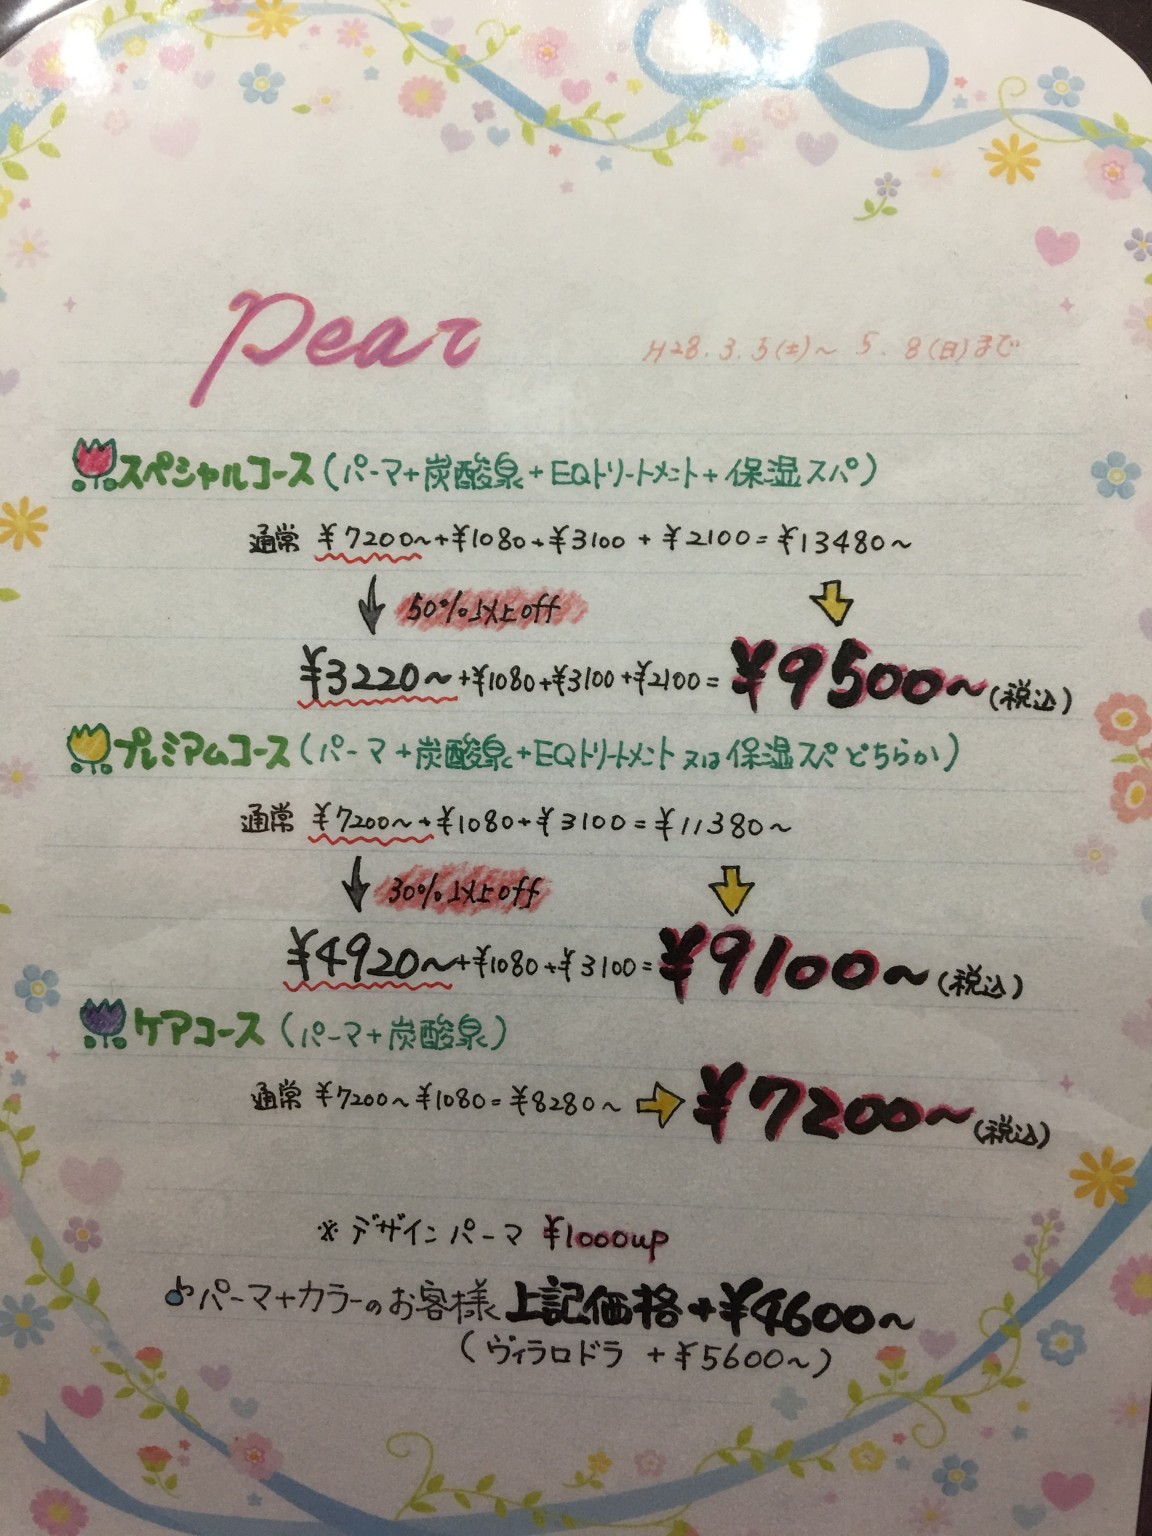 pear
H28.3.5(土)～5.8(日)まで
スペシャルコース(パーマ+炭酸泉+EQトリートメント+保湿スパ)
通常 ¥7200～+¥1080+¥3100+¥2100=¥13480～
↓ 50%以上off ↓
¥3220～+¥1080+¥3100+¥2100=¥9500～(税込)
プレミアムコース(パーマ+炭酸泉+EQトリートメント又は保湿スパどちらか)
通常 ¥7200～+¥1080+¥3100=¥11380～
↓ 30%以上off ↓
¥4920～+¥1080+¥3100=¥9100～(税込)
ケアコース(パーマ+炭酸泉)
通常 ¥7200～¥1080=¥8280～ → ¥7200～(税込)
※デザインパーマ ¥1000up
♪パーマ+カラーのお客様 上記価格+¥4600～
(ヴィラロドラ +¥5600～)